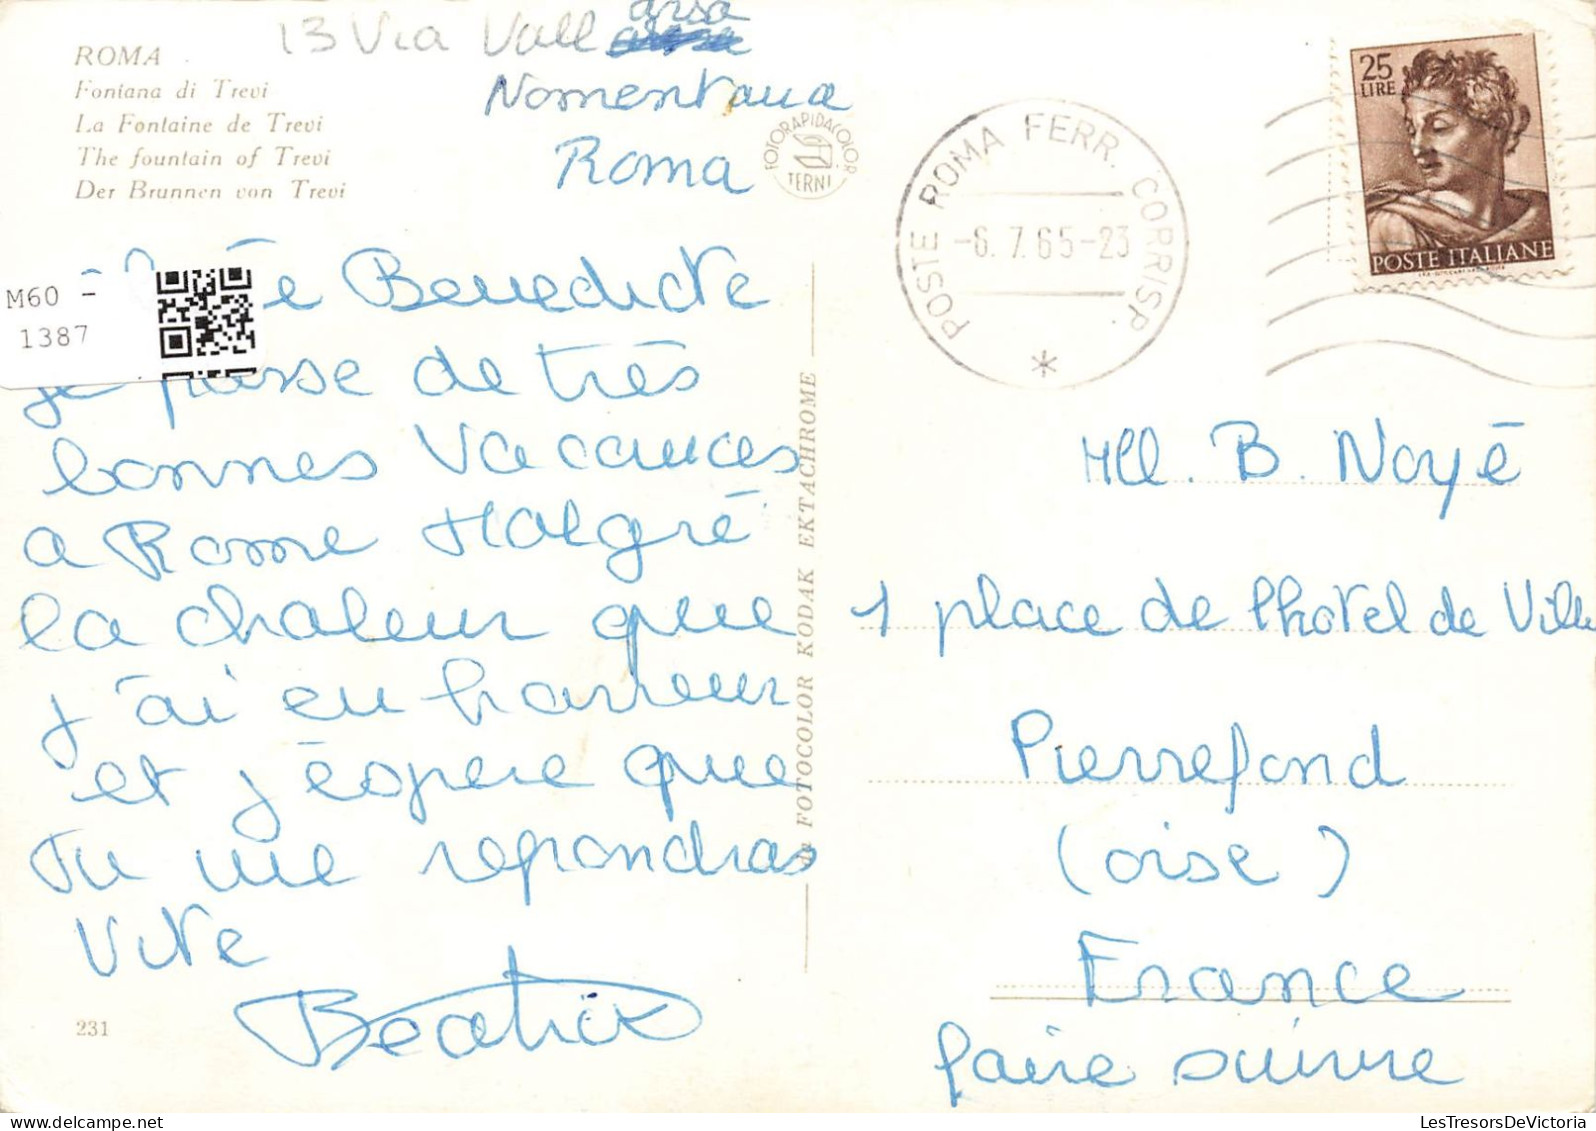 13 Via Vall arsa
Nomentana
Roma
ROMA
Fontana di Trevi
La Fontaine de Trevi
The fountain of Trevi
Der Brunnen von Trevi
FOTORAPIDACOLOR
TERNI
POSTE ROMA FERR. CORRISP.
-6.7.65-23
25
LIRE
POSTE ITALIANE
M60 -
1387
Benedicte
je passe de très
bonnes vacances
a Rome Malgré
la chaleur que
j'ai en horreur
et j'espere que
Tu me repondras
Vite
Beatrice
231
da FOTOCOLOR KODAK EKTACHROME
Mll. B. Noyé
1 place de l'hotel de Ville
Pierrefond
(oise)
France
faire suivre
LesTresorsDeVictoria